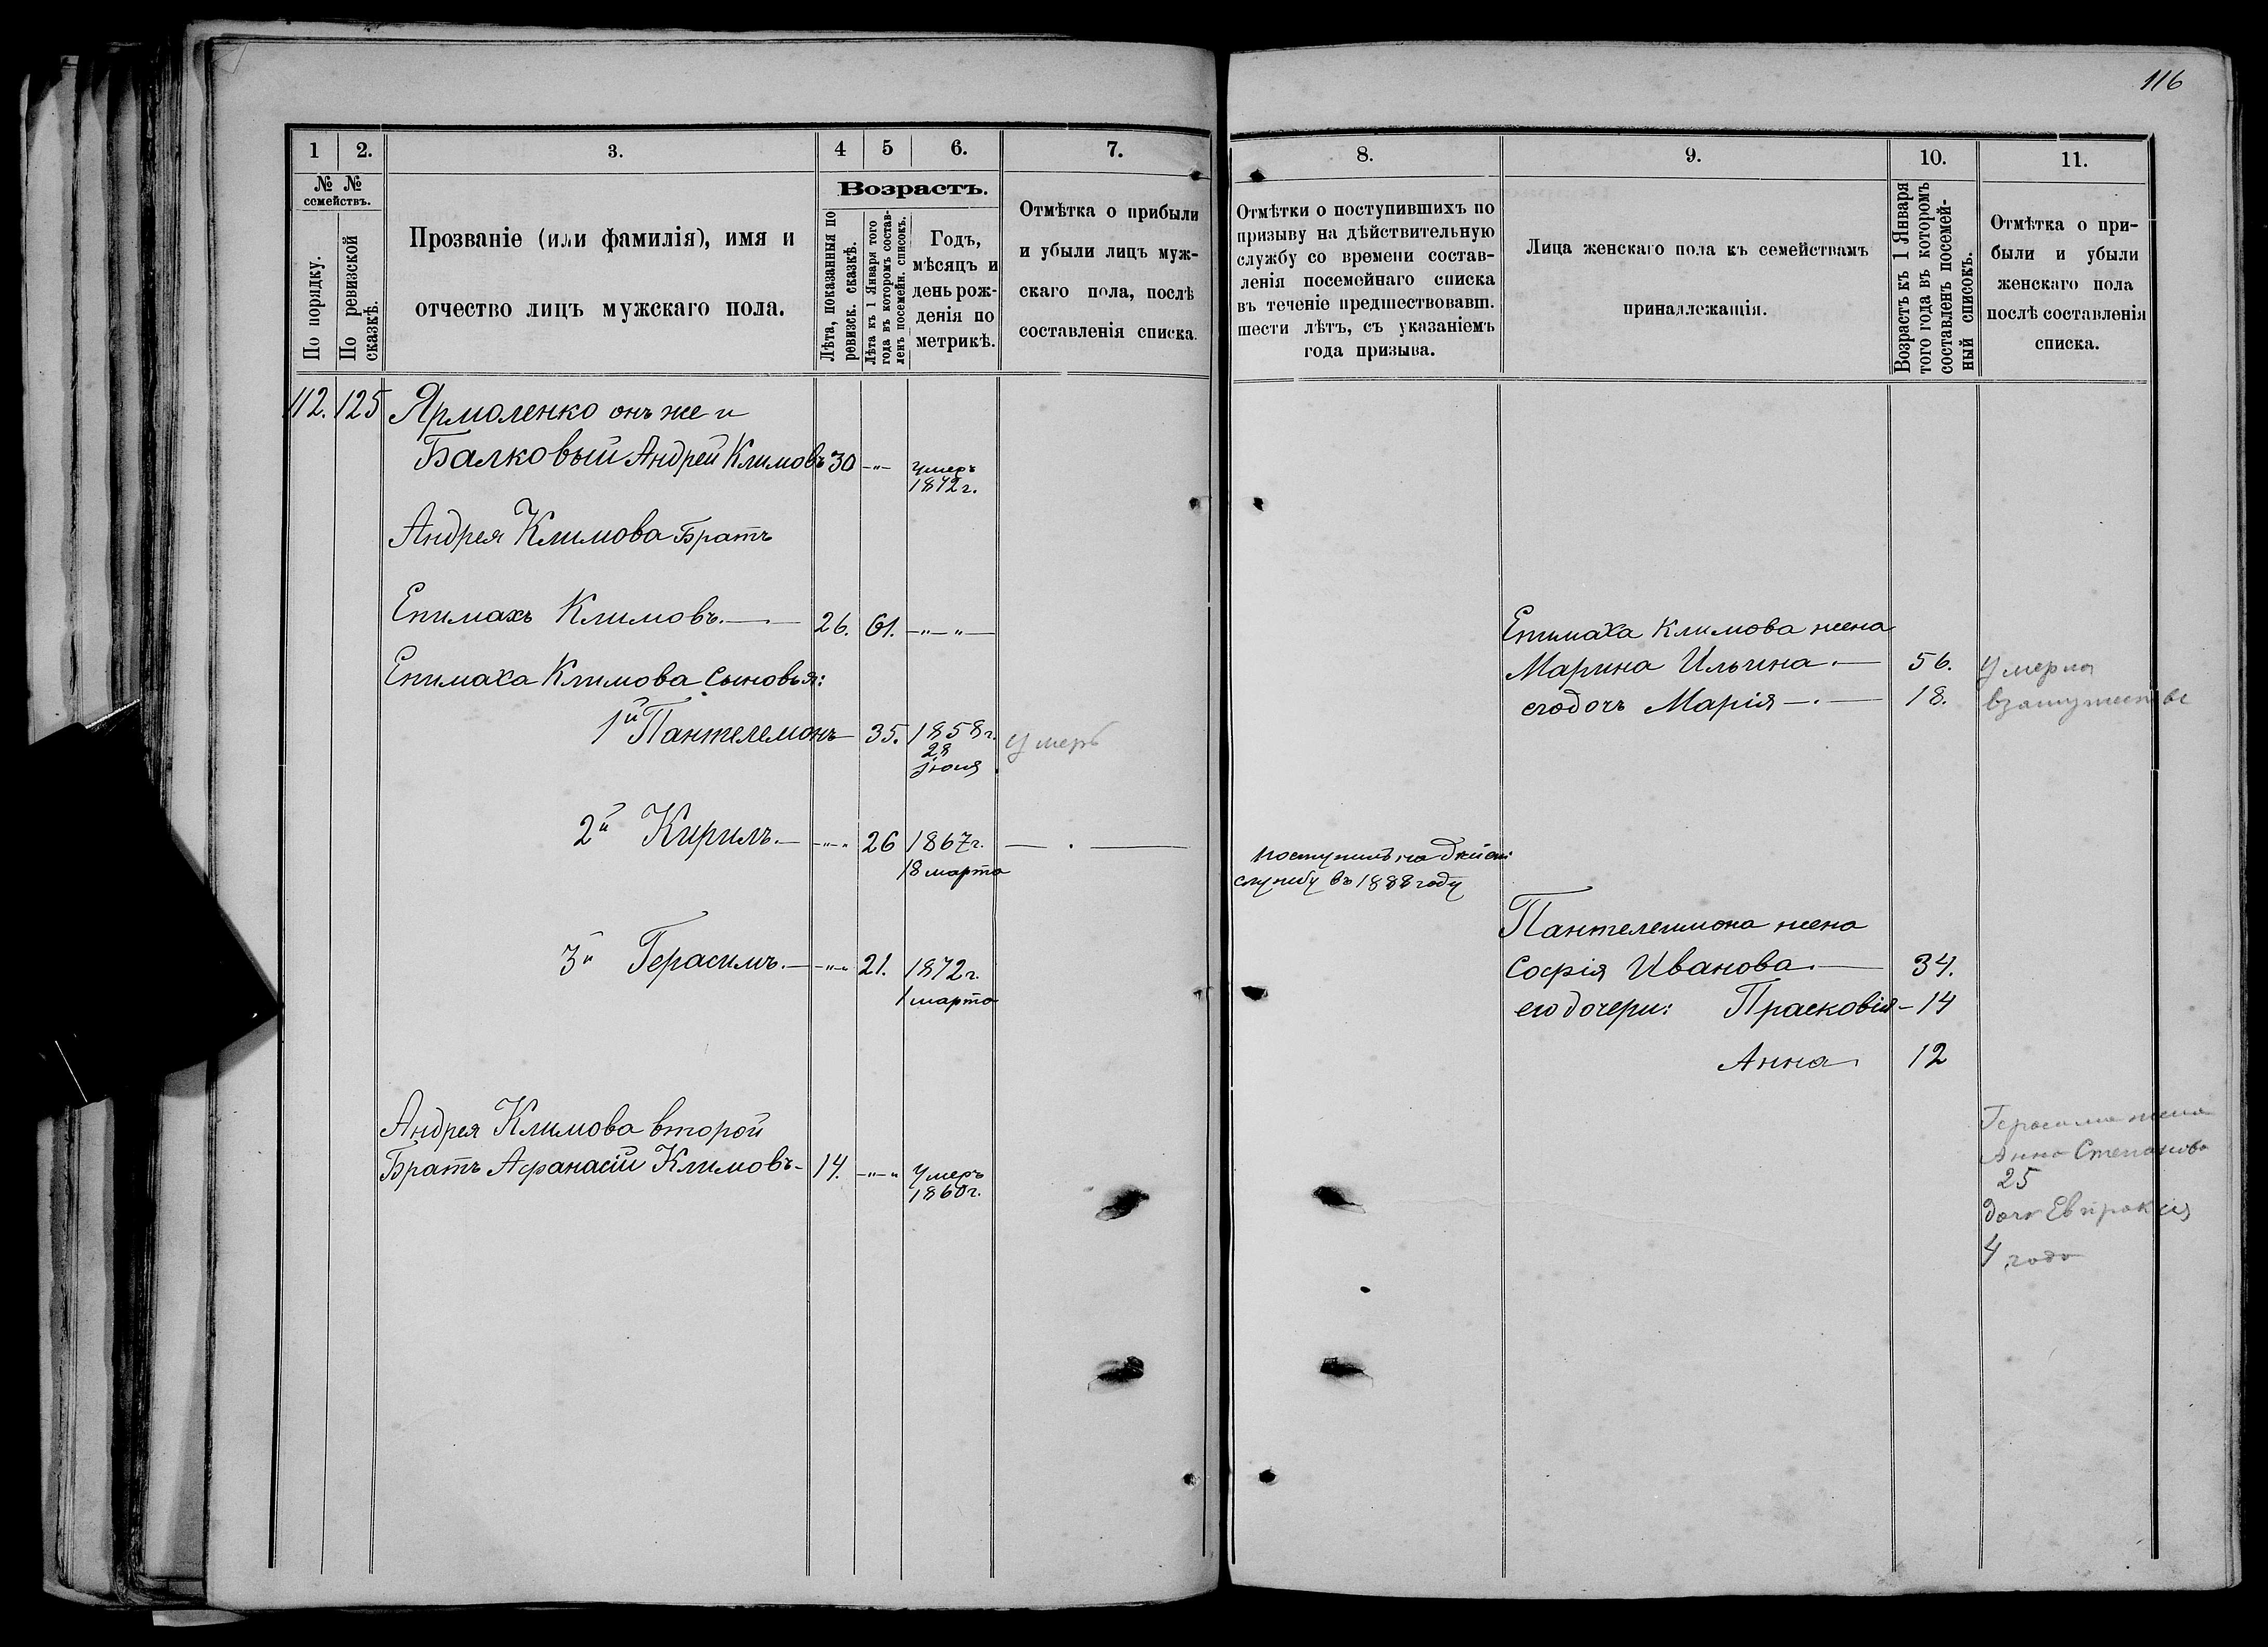 116
1
2.
3.
4
5
6.
7.
№ №
семействъ.
По порядку.
По ревизской
сказкѣ.
Прозваніе (или фамилія), имя и
отчество лицъ мужскаго пола.
Возрастъ.
Лѣта, показанныя по
ревизск. сказкѣ.
Лѣта къ 1 Января того
года въ которомъ состав-
ленъ посемейн. списокъ.
Годъ,
мѣсяцъ и
день рож-
денія по
метрикѣ.
Отмѣтка о прибыли
и убыли лицъ муж-
скаго пола, послѣ
составленія списка.
112. 125 Ярмоленко онъ же и
Балковый Андрей Климовъ 30 -"-
умеръ
1872 г.
Андрея Климова Братъ
Епимахъ Климовъ. 26. 61. -"-"-
Епимаха Климова Сыновья:
1й Пантелемонъ 35. 1858 г.
28
Іюня
Умеръ
2й Кирилъ. -"-" 26 1867 г.
18 марта
3й Герасимъ. -"-" 21. 1872 г.
1 марта
Андрея Климова второй
Братъ Афанасій Климовъ- 14. -"-"
Умеръ
1860 г.
8.
9.
10.
11.
Отмѣтки о поступившихъ по
призыву на дѣйствительную
службу со времени состав-
ленія посемейнаго списка
въ теченіе предшествовавш.
шести лѣтъ, съ указаніемъ
года призыва.
Лица женскаго пола къ семействамъ
принадлежащія.
Возрастъ къ 1 Января
того года въ которомъ
составленъ посемей-
ный списокъ.
Отмѣтка о при-
были и убыли
женскаго пола
послѣ составленія
списка.
Епимаха Климова жена
Марина Ильина. 56. Умерла
его дочь Марія 18. взамужестве
поступилъ на дѣйст:
службу въ 1888 году
Пантелеимона жена
Софія Иванова. 34.
его дочери: Прасковія - 14
Анна 12
Герасима жена
Анна Степанова
25
дочь Евпраксія
4 года